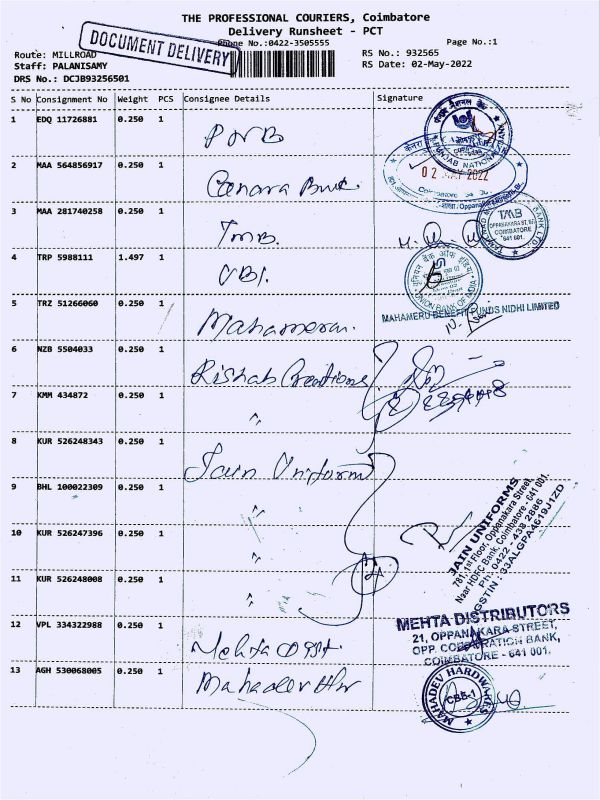 THE PROFESSIONAL COURIERS, Coimbatore
Delivery Runsheet - PCT
DOCUMENT DELIVERY
Phone No.:0422-3505555
Page No.:1
Route: MILLROAD
RS No.: 932565
Staff: PALANISAMY
RS Date: 02-May-2022
DRS No.: DCJB93256501
S No Consignment No Weight PCS Consignee Details Signature
1 EDQ 11726881 0.250 1 PNB
PUNJAB NATIONAL BANK
2 MAA 564856917 0.250 1 Canara Bank
02 MAY 2022
3 MAA 281740258 0.250 1 TMB.
TMB
OPPANAKARA ST,
COIMBATORE
641 001.
4 TRP 5988111 1.497 1 UBI.
यूनियन बैंक ऑफ इंडिया
UNION BANK OF INDIA
5 TRZ 51266060 0.250 1 Mahameru.
MAHAMERU BENEFIT FUNDS NIDHI LIMITED
6 NZB 5504033 0.250 1 Rishab Creations
7 KMM 434872 0.250 1 "
8 KUR 526248343 0.250 1 Jain Uniform
9 BHL 100022309 0.250 1 "
10 KUR 526247396 0.250 1 "
11 KUR 526248008 0.250 1 "
JAIN UNIFORMS
781, 1st Floor, Oppanakara Street,
Near HDFC Bank, Coimbatore - 641 001.
Ph: 0422 - 438 2886
GSTIN : 33ALGPA4619J1ZD
12 VPL 334322988 0.250 1 Mehta Dist.
MEHTA DISTRIBUTORS
21, OPPANAKARA STREET,
OPP. CORPORATION BANK,
COIMBATORE - 641 001.
13 AGH 530068005 0.250 1 Mahadev Hw
MAHADEV HARDWARES
CBE-1